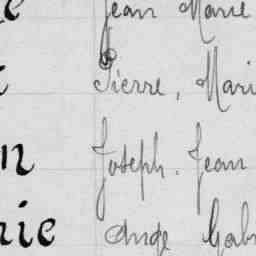 Jean Marie
Pierre, Mari
n Joseph. Jean
rie Ange Gab